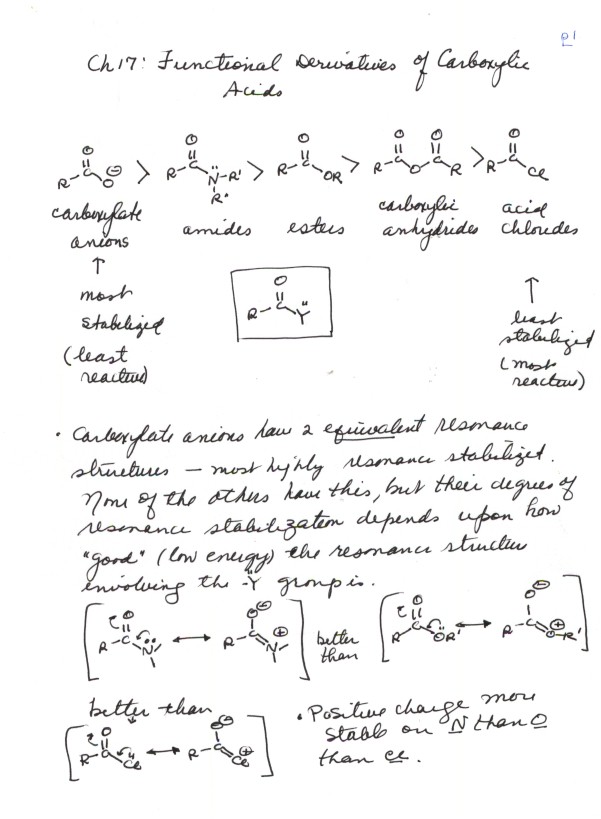 P1
Ch 17: Functional Derivatives of Carboxylic
Acids
O O O O O O
R-C O ⊖ > R-C N-R' R" > R-C OR > R-C O C R > R-C Cl
carboxylate anions
amides
esters
carboxylic anhydrides
acid chlorides
↑
most
stabilized
(least
reactive)
O
R-C Y
↑
least
stabilized
(most
reactive)
• Carboxylate anions have 2 equivalent resonance
structures — most highly resonance stabilized.
None of the others have this, but their degree of
resonance stabilization depends upon how
"good" (low energy) the resonance structure
involving the -Ÿ group is.
[R-C O N ↔ R-C O ⊖ N ⊕] better than [R-C O OR' ↔ R-C O ⊖ O-R' ⊕]
better than
[R-C O Cl ↔ R-C O ⊖ Cl ⊕]
• Positive charge more
stable on N than O
than Cl.